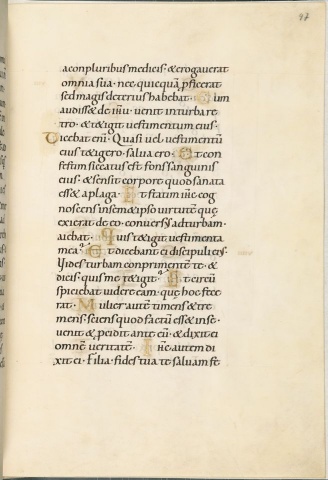 97
a conpluribus medicis · & erogauerat
omnia sua · nec quicquā pficerat
sed magis deterius habebat · Cum
audiss& de ihu · uenit in turba re
tro · & tetigit uestimentum eius ·
Dicebat enī · Quasi uel uestimentū
eius tetigero · salua ero · Et con
festim siccatus est fons sanguinis
eius · & sensit corpore quod sanata
ess& a plaga · Et statim ihc cog
noscens in sem&ipso uirtutē quę
exierat de eo · conuersus ad turbam ·
aiebat · Quis tetigit uestimenta
mea · Et dicebant ei discipuli eius ·
Uides turbam conprimentē te · &
dicis · quis me tetigit · Et circū
spiciebat uidere eam · quę hoc fece
rat · Mulier autē timens & tre
mens · sciens quod factū ess& in se ·
uenit & pcidit ante eū · & dixit ei
omnē ueritatē · Ihc autem di
xit ei · Filia · fides tua te saluam fe